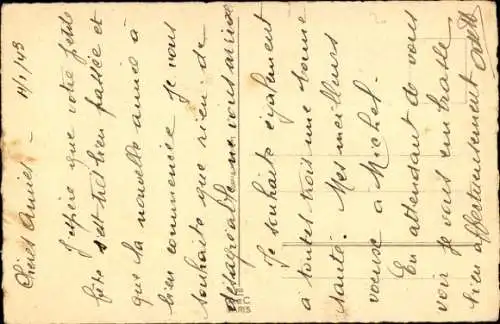 11/1/43
Chères Amies –
J'espère que votre petite
fête s'est très bien passée et
que la nouvelle année à
bien commencée. Je vous
souhaite que rien de
désagréable ne vous arrive
Je souhaite également
à toutes trois une bonne
santé. Mes meilleurs
voeux à Michel.
En attendant de vous
voir je vous embrasse
bien affectueusement
PARIS